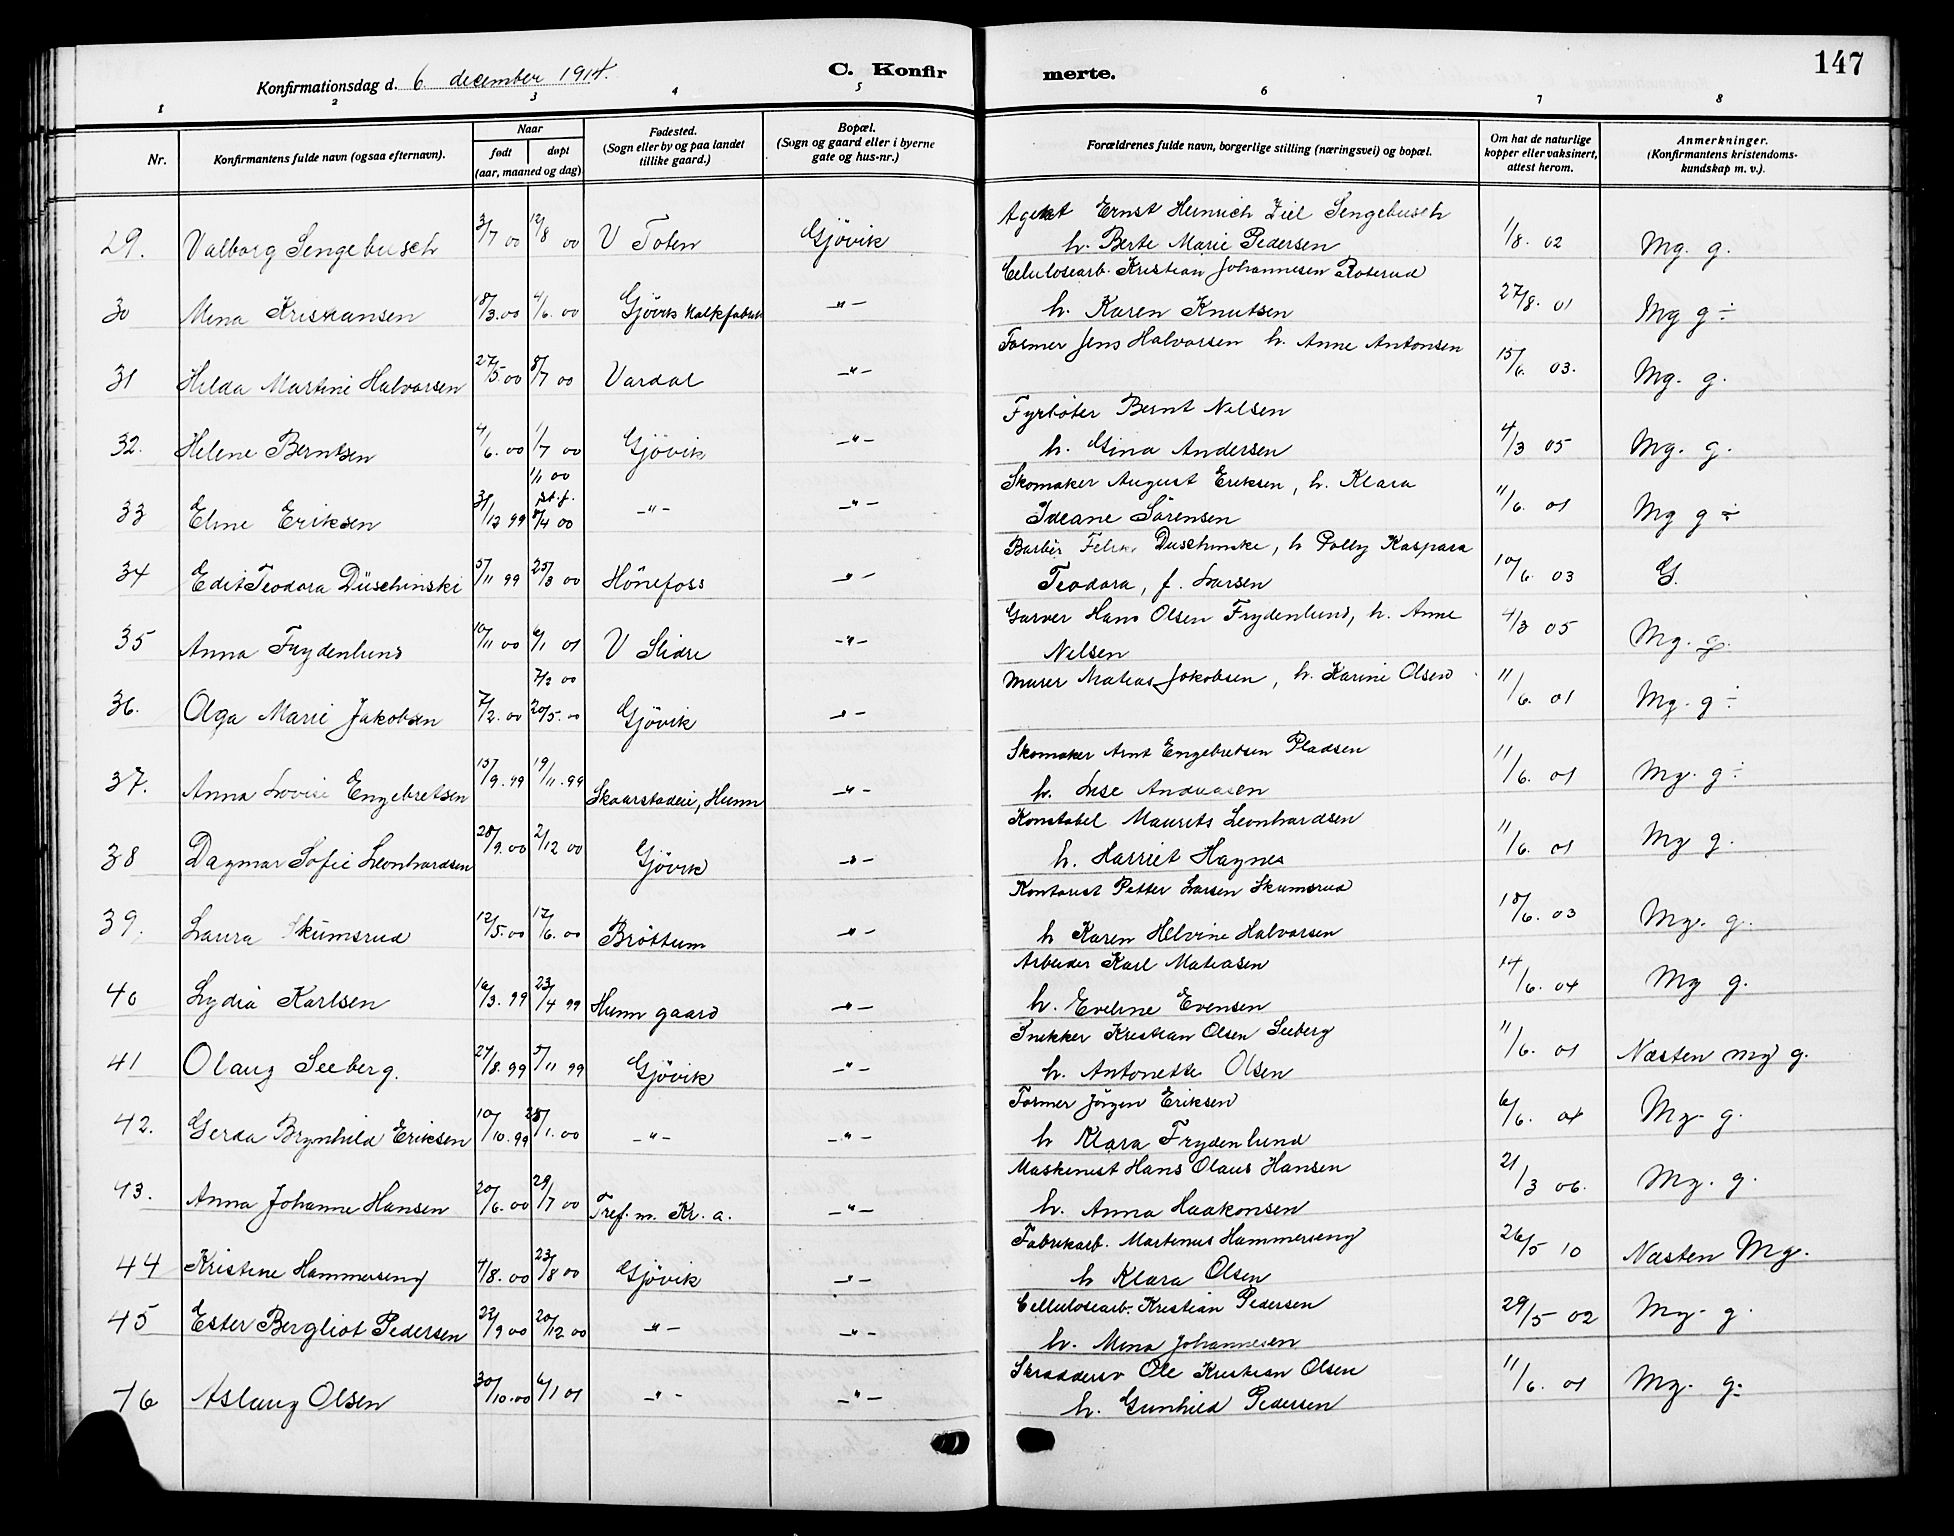 147
Konfirmationsdag d. 6. december 1914. C. Konfirmerte.
1 2 3 4 5 6 7 8
Nr. Konfirmantens fulde navn (ogsaa efternavn). Naar født døpt (aar, maaned og dag) Fødested. (Sogn eller by og paa landet tillike gaard.) Bopæl. (Sogn og gaard eller i byerne gate og hus-nr.) Forældrenes fulde navn, borgerlige stilling (næringsvei) og bopæl. Om hat de naturlige kopper eller vaksinert, attest herom. Anmerkninger. (Konfirmantens kristendomskundskap m. v.).
29. Valborg Sengebusch 3/7 00 12/8 00 V Toten Gjövik Agent Ernst Heinrich Ziel Sengebusch
h. Berte Marie Pedersen 1/8. 02 Mg. g.
30 Mina Kristiansen 18/3.00 4/6. 00 Gjövik Kalkfabrik -"- Celulosearb. Kristian Johannesen Roterud
h. Karen Knutsen 27/8. 01 Mg g ÷
31 Hilda Martine Halvorsen 27/5.00 8/7 00 Vardal -"- Former Jens Halvorsen h. Anne Antonsen 15/6. 03. Mg. g.
32. Helene Berntsen 4/6.00 1/7 00 Gjövik -"- Fyrböter Bernt Nilsen
h. Gina Andersen 4/3 05 Mg. g.
33 Eline Eriksen 31/12 99 1/1 00 st.f. 8/4 00 -"- -"- Skomaker August Eriksen, h. Klara
Ideane Sörensen 11/6. 01 Mg g ÷
34 Edit Teodora Düschinski 5/11 99 25/3 00 Hönefoss -"- Barber Felix Duschinske, h Polly Kaspara
Teodora, f. Larsen 10/6. 03 G.
35 Anna Frydenlund 10/11 00 6/1 01 V Slidre -"- Garver Hans Olsen Frydenlund, h. Anne
Nilsen 4/3 05 Mg. g.
36. Olga Marie Jakobsen 7/2.00 7/2 00 20/5.00 Gjövik -"- Murer Matias Jokobsen, h. Karine Olsen 11/6. 01 Mg. g ÷
37. Anna Lovise Engebretsen 15/9.99 19/11.99 Skaarstadeie, Hunn -"- Skomaker Arnt Engebretsen Pladsen
h. Lise Andreasen 11/6. 01 Mg. g ÷
38 Dagmar Sofie Leonhardsen 28/9.00 2/12 00 Gjövik -"- Konstabel Maurits Leonhardsen
h. Harriet Haynes 11/6. 01 Mg g.
39. Laura Skumsrud 12/5.00 17/6.00 Bröttum -"- Kontorist Petter Larsen Skumsrud
h Karen Helvine Halvorsen 18/6. 03 Mg. g.
40 Lydia Karlsen 16/3.99 23/4 99 Hunn gaard -"- Arbeider Karl Matiasen
h. Eveline Evensen 14/6. 04 Mg g.
41 Olaug Seeberg. 27/8.99 5/11 99 Gjövik -"- Snekker Kristian Olsen Seeberg
h. Antonette Olsen 11/6. 01 Næsten mg g.
42. Gerda Brynhild Eriksen 10/10.99 28/1.00 -"- -"- Former Jörgen Eriksen
h Klara Frydenlund 6/6. 04 Mg. g.
43. Anna Johanne Hansen 20/6.00 29/7 00 Tref. m. Kr. a. -"- Maskinist Hans Olaus Hansen
h. Anna Haakonsen 21/3 06. Mg. g.
44 Kristine Hammerseng 4/8.00 23/8 00 Gjövik -"- Fabrikarb. Martinus Hammerseng
h Klara Olsen 26/5 10 Næsten Mg.
45 Ester Bergliot Pedersen 22/9 00 20/12 00 -"- -"- Cellulosearb. Kristian Pedersen
h. Mina Johannesen 29/5 02 Mg. g
46 Aslaug Olsen 30/10.00 6/1 01 -"- -"- Skrædderसv Ole Kristian Olsen
h. Gunhild Pedersen 11/6. 01 Mg. g.